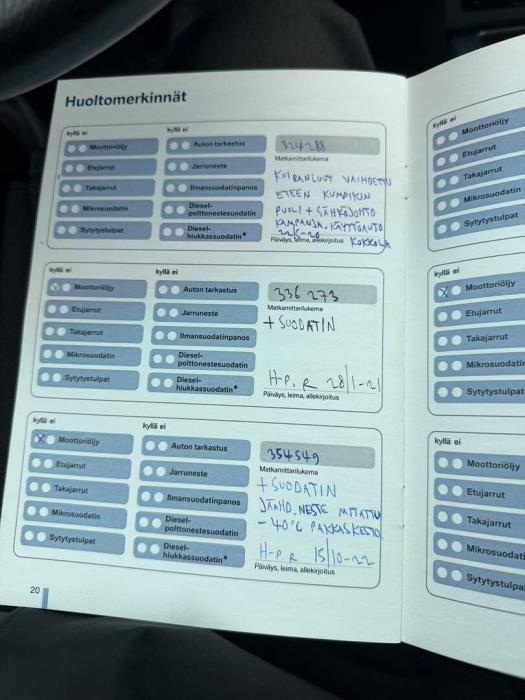 Huoltomerkinnät
kyllä ei
kyllä ei
Moottoriöljy
Auton tarkastus
324288
Matkamittarilukema
Etujarrut
Jarruneste
KOIRANLUUT VAIHDETTU
Takajarrut
Ilmansuodatinpanos
ETEEN KUMPIKIN
Mikrosuodatin
Diesel-
polttonestesuodatin
PUOLI + SÄHKÖJOHTO
KAMPANJA. KÄYTTÖAUTO
Sytytystulpat
Diesel-
hiukkassuodatin*
KOKKOLA
Päiväys, leima, allekirjoitus
kyllä ei
kyllä ei
Moottoriöljy
Auton tarkastus
336 273
Matkamittarilukema
Etujarrut
Jarruneste
+ SUODATIN
Takajarrut
Ilmansuodatinpanos
Mikrosuodatin
Diesel-
polttonestesuodatin
Sytytystulpat
Diesel-
hiukkassuodatin*
H-P.R 28/1-21
Päiväys, leima, allekirjoitus
kyllä ei
kyllä ei
Moottoriöljy
Auton tarkastus
354549
Matkamittarilukema
Etujarrut
Jarruneste
+ SUODATIN
Takajarrut
Ilmansuodatinpanos
JÄÄHD. NESTE MITATTU
Mikrosuodatin
Diesel-
polttonestesuodatin
-40°C PAKKASKESTO
Sytytystulpat
Diesel-
hiukkassuodatin*
H-P.R 15/10-22
Päiväys, leima, allekirjoitus
20
kyllä ei
Moottoriöljy
Etujarrut
Takajarrut
Mikrosuodatin
Sytytystulpat
kyllä ei
Moottoriöljy
Etujarrut
Takajarrut
Mikrosuodatin
Sytytystulpat
kyllä ei
Moottoriöljy
Etujarrut
Takajarrut
Mikrosuodati
Sytytystulpa